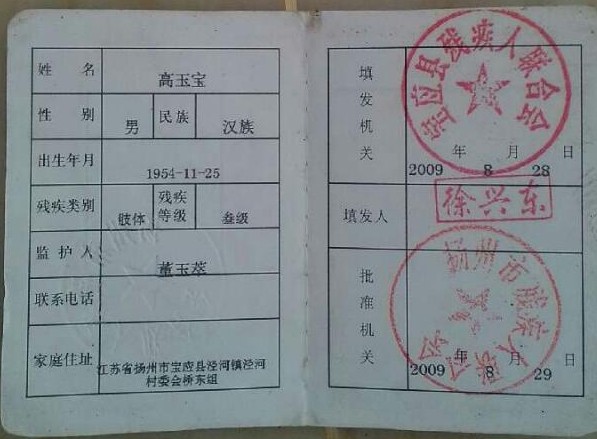 姓名 高玉宝
性别 男 民族 汉族
出生年月 1954-11-25
残疾类别 肢体 残疾等级 叁级
监护人 董玉萃
联系电话
家庭住址 江苏省扬州市宝应县泾河镇泾河
村委会桥东组
填发机关
宝应县残疾人联合会
2009年8月28日
填发人 徐兴东
批准机关
扬州市残疾人联合会
2009年8月29日